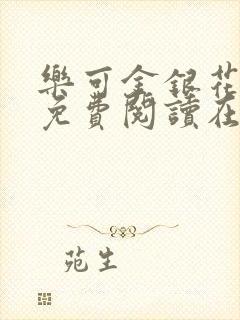 樂可金銀花
免費閱讀在
苑生